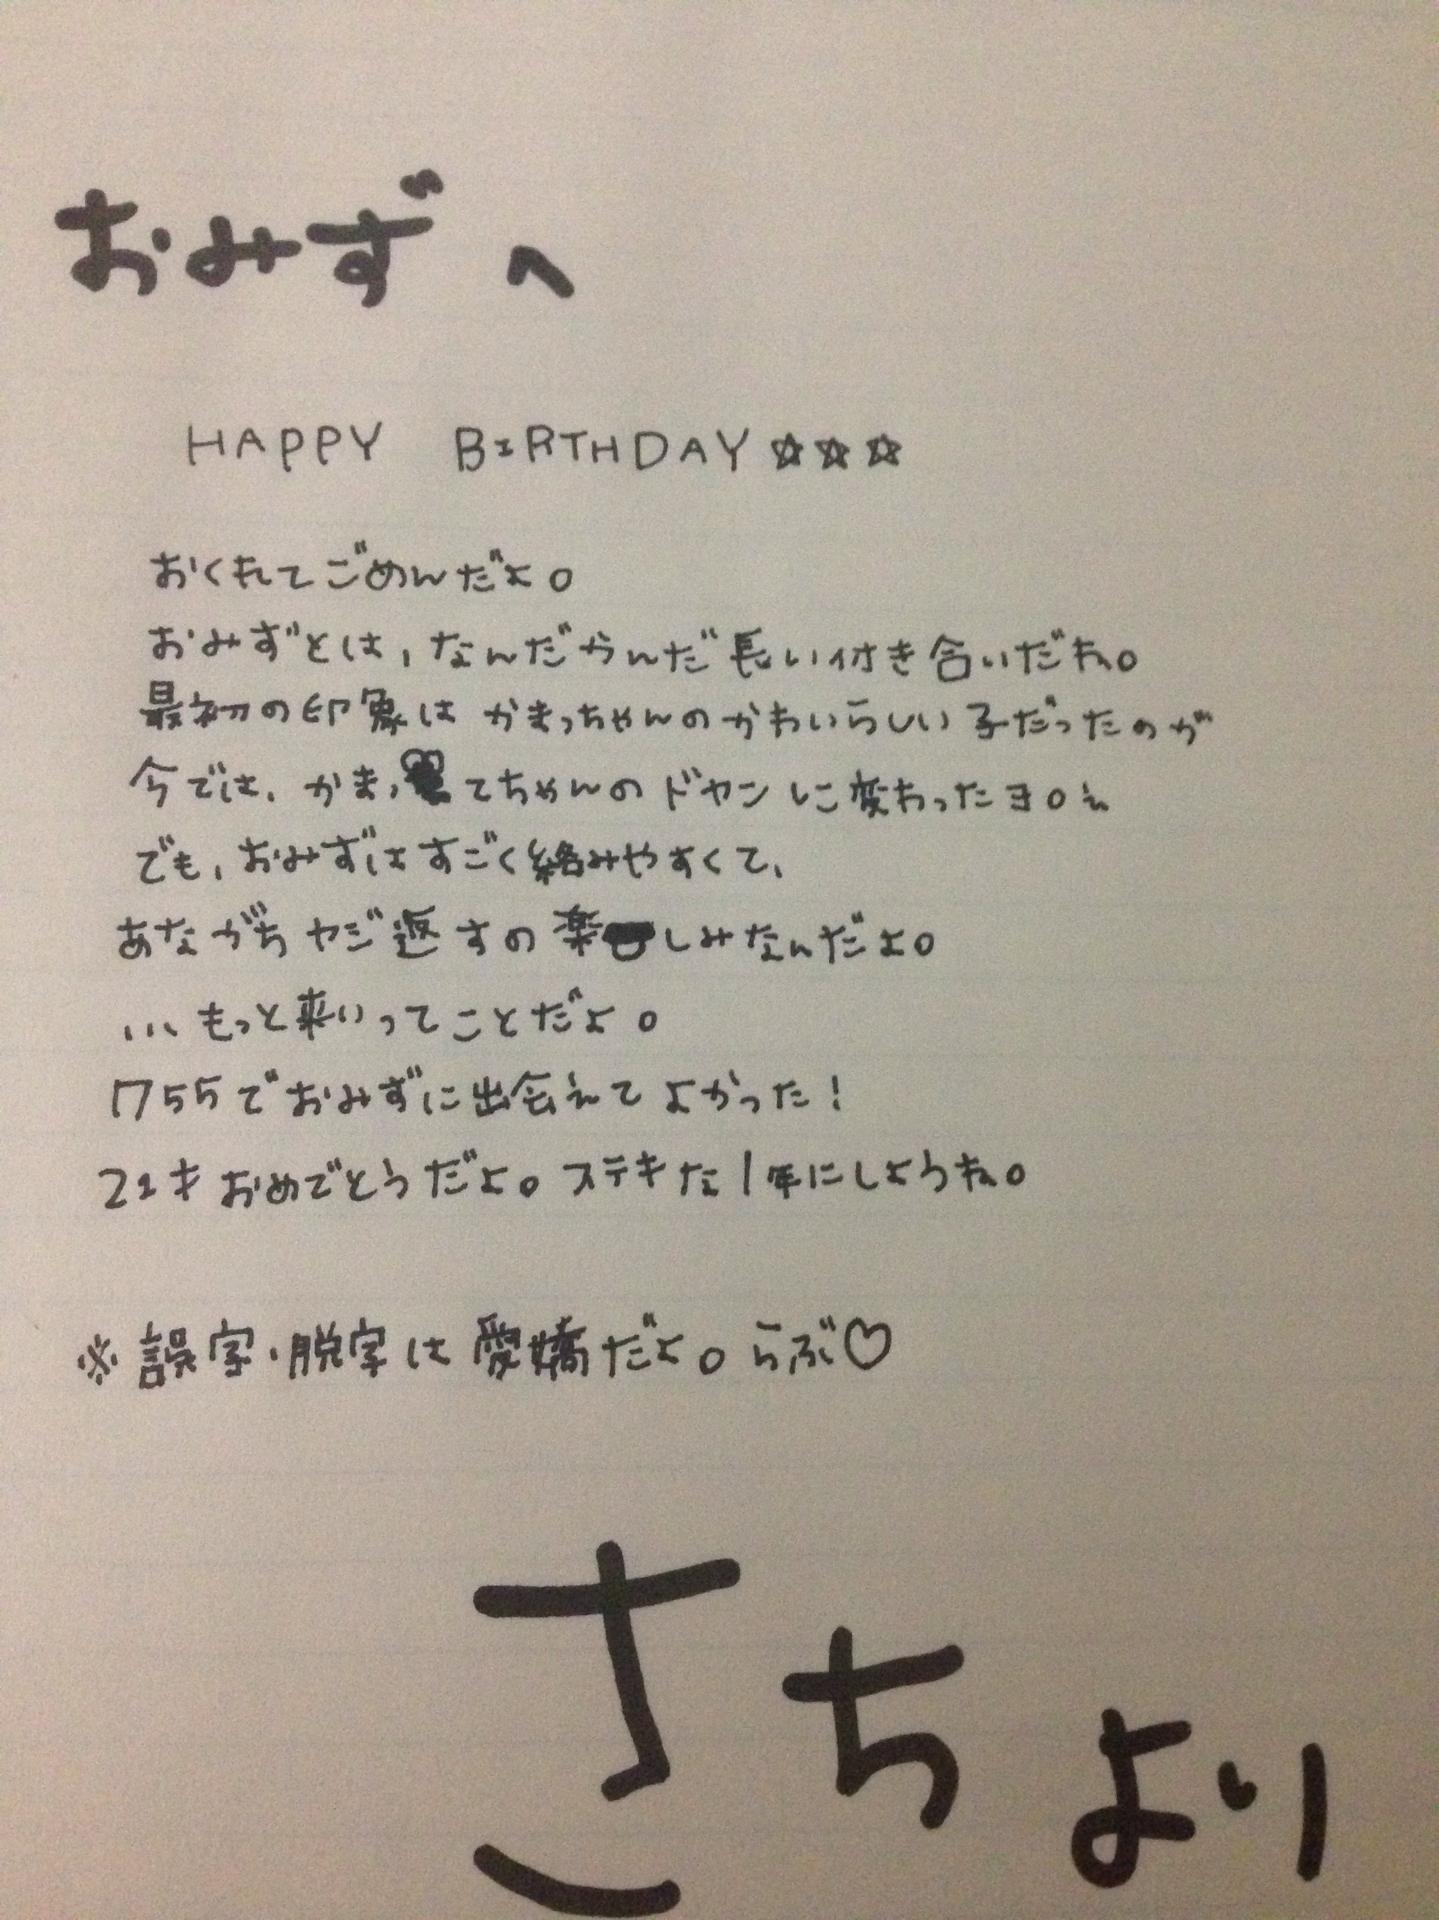 おみずへ
HAPPY BIRTHDAY☆☆☆
おくれてごめんだよ。
おみずとは、なんだかんだ長い付き合いだね。
最初の印象はかまっちゃんのかわいらしい子だったのが
今では、かまってちゃんのドヤンに変わったヨ。
でも、おみずはすごく絡みやすくて、
あながちヤジ返すの楽しみなんだよ。
...もっと来いってことだよ。
755でおみずに出会えてよかった!
21才おめでとうだよ。ステキな1年にしようね。
※誤字・脱字は愛嬌だよ。らぶ♡
さちより